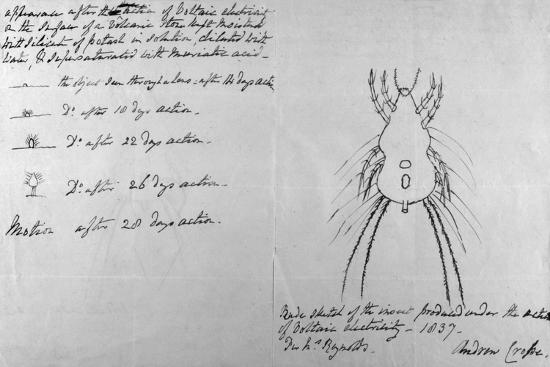 appearance after the action of Voltaic electricity
on the surface of a Volcanic stone kept moistened
with Silicate of potash in solution, diluted with
water, & supersaturated with Muriatic acid -
the object seen through a lens - after 14 days action
Do. after 18 days action.
Do. after 22 days action.
Do. after 26 days action.
Motion after 28 days action.
Rude sketch of the insect produced under the action
of Voltaic electricity - 1837.
Reynolds.
Andrew Crosse.